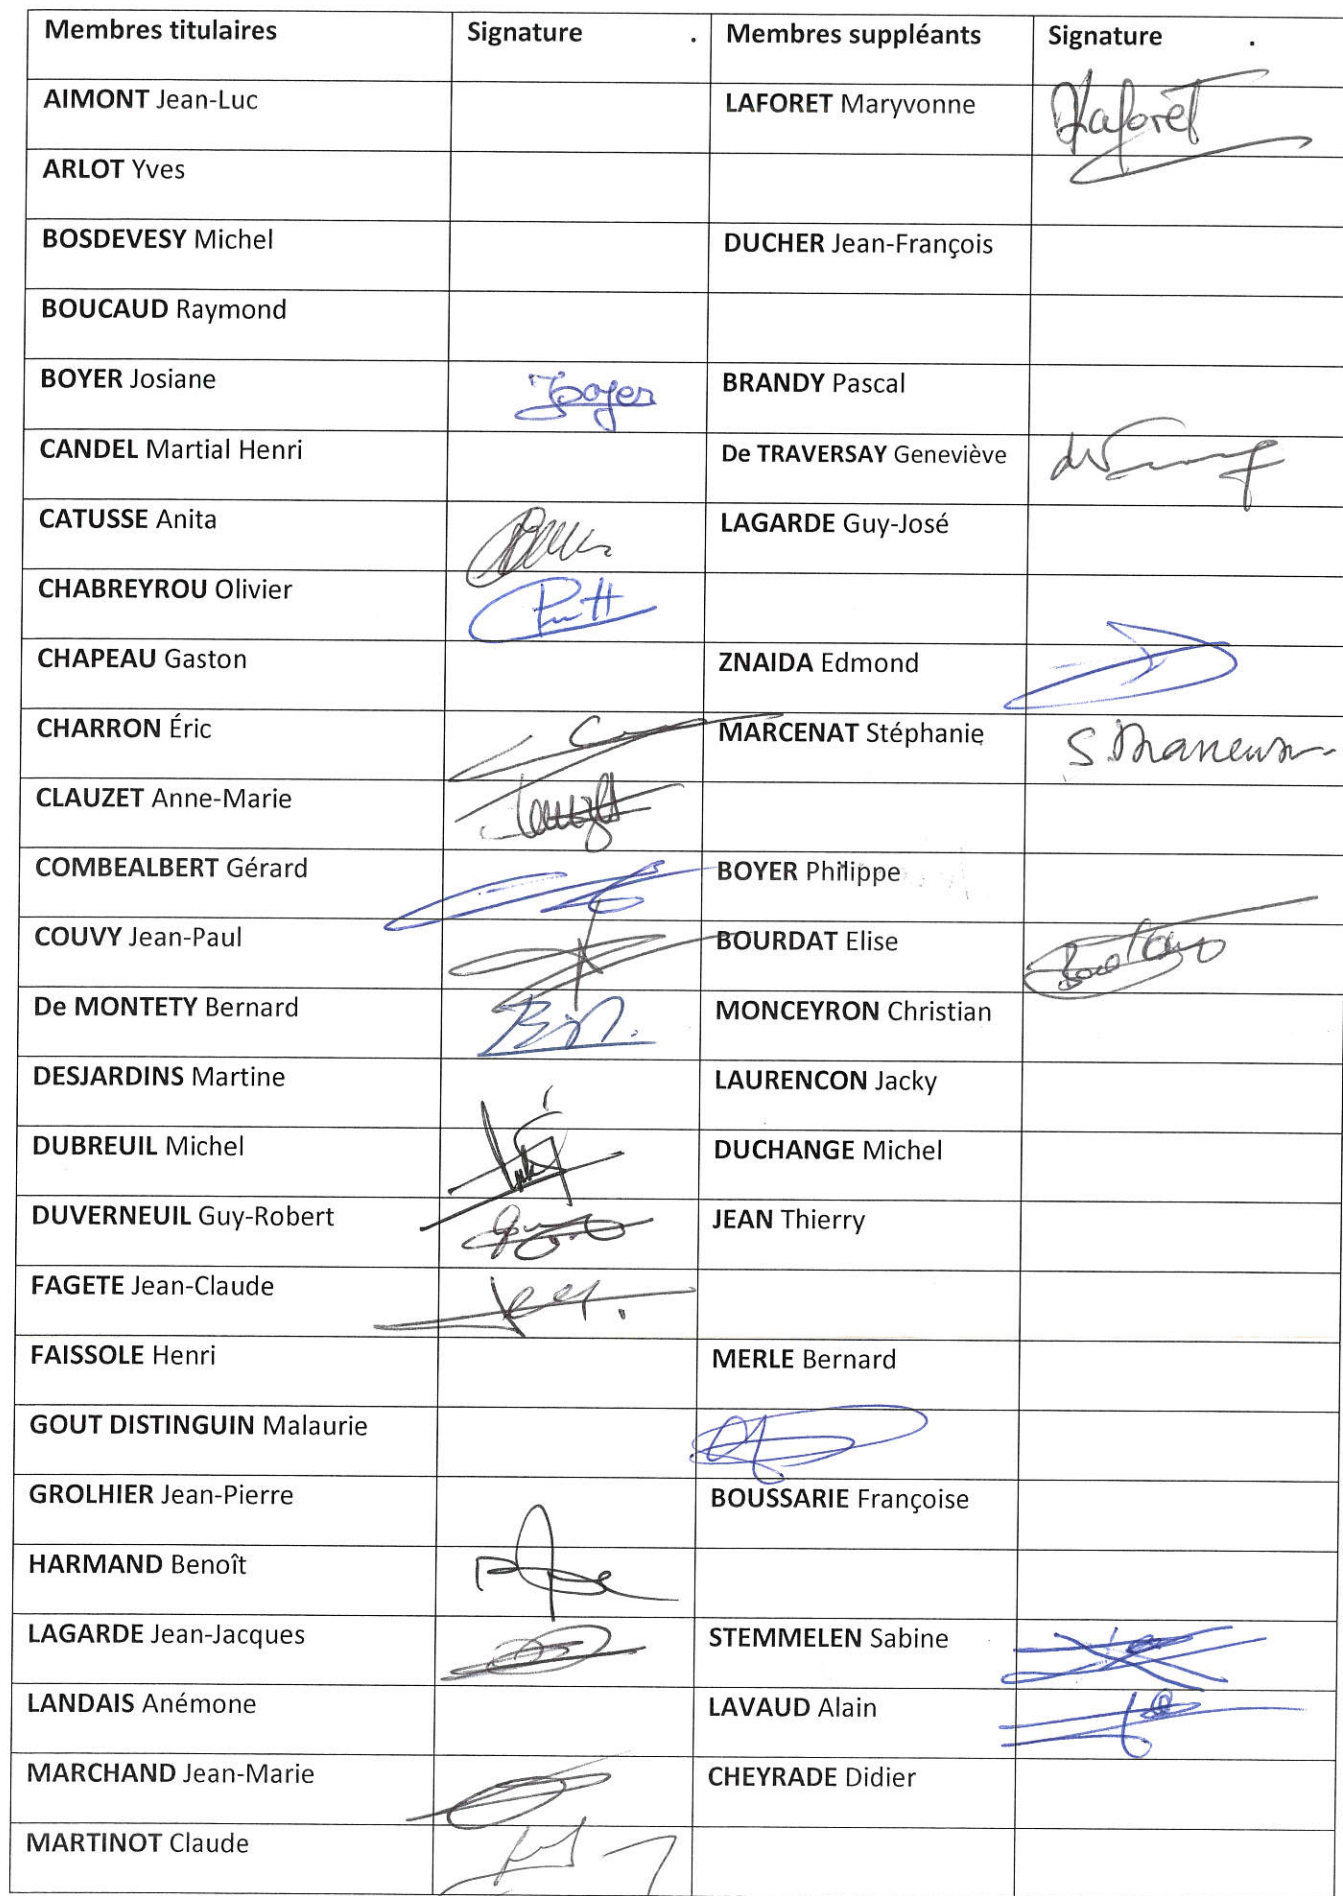 Membres titulaires Signature . Membres suppléants Signature .
AIMONT Jean-Luc LAFORET Maryvonne Laforêt
ARLOT Yves
BOSDEVESY Michel DUCHER Jean-François
BOUCAUD Raymond
BOYER Josiane Boyer BRANDY Pascal
CANDEL Martial Henri De TRAVERSAY Geneviève
CATUSSE Anita LAGARDE Guy-José
CHABREYROU Olivier
CHAPEAU Gaston ZNAIDA Edmond
CHARRON Éric MARCENAT Stéphanie
CLAUZET Anne-Marie
COMBEALBERT Gérard BOYER Philippe
COUVY Jean-Paul BOURDAT Elise
De MONTETY Bernard MONCEYRON Christian
DESJARDINS Martine LAURENCON Jacky
DUBREUIL Michel DUCHANGE Michel
DUVERNEUIL Guy-Robert JEAN Thierry
FAGETE Jean-Claude
FAISSOLE Henri MERLE Bernard
GOUT DISTINGUIN Malaurie
GROLHIER Jean-Pierre BOUSSARIE Françoise
HARMAND Benoît
LAGARDE Jean-Jacques STEMMELEN Sabine
LANDAIS Anémone LAVAUD Alain
MARCHAND Jean-Marie CHEYRADE Didier
MARTINOT Claude